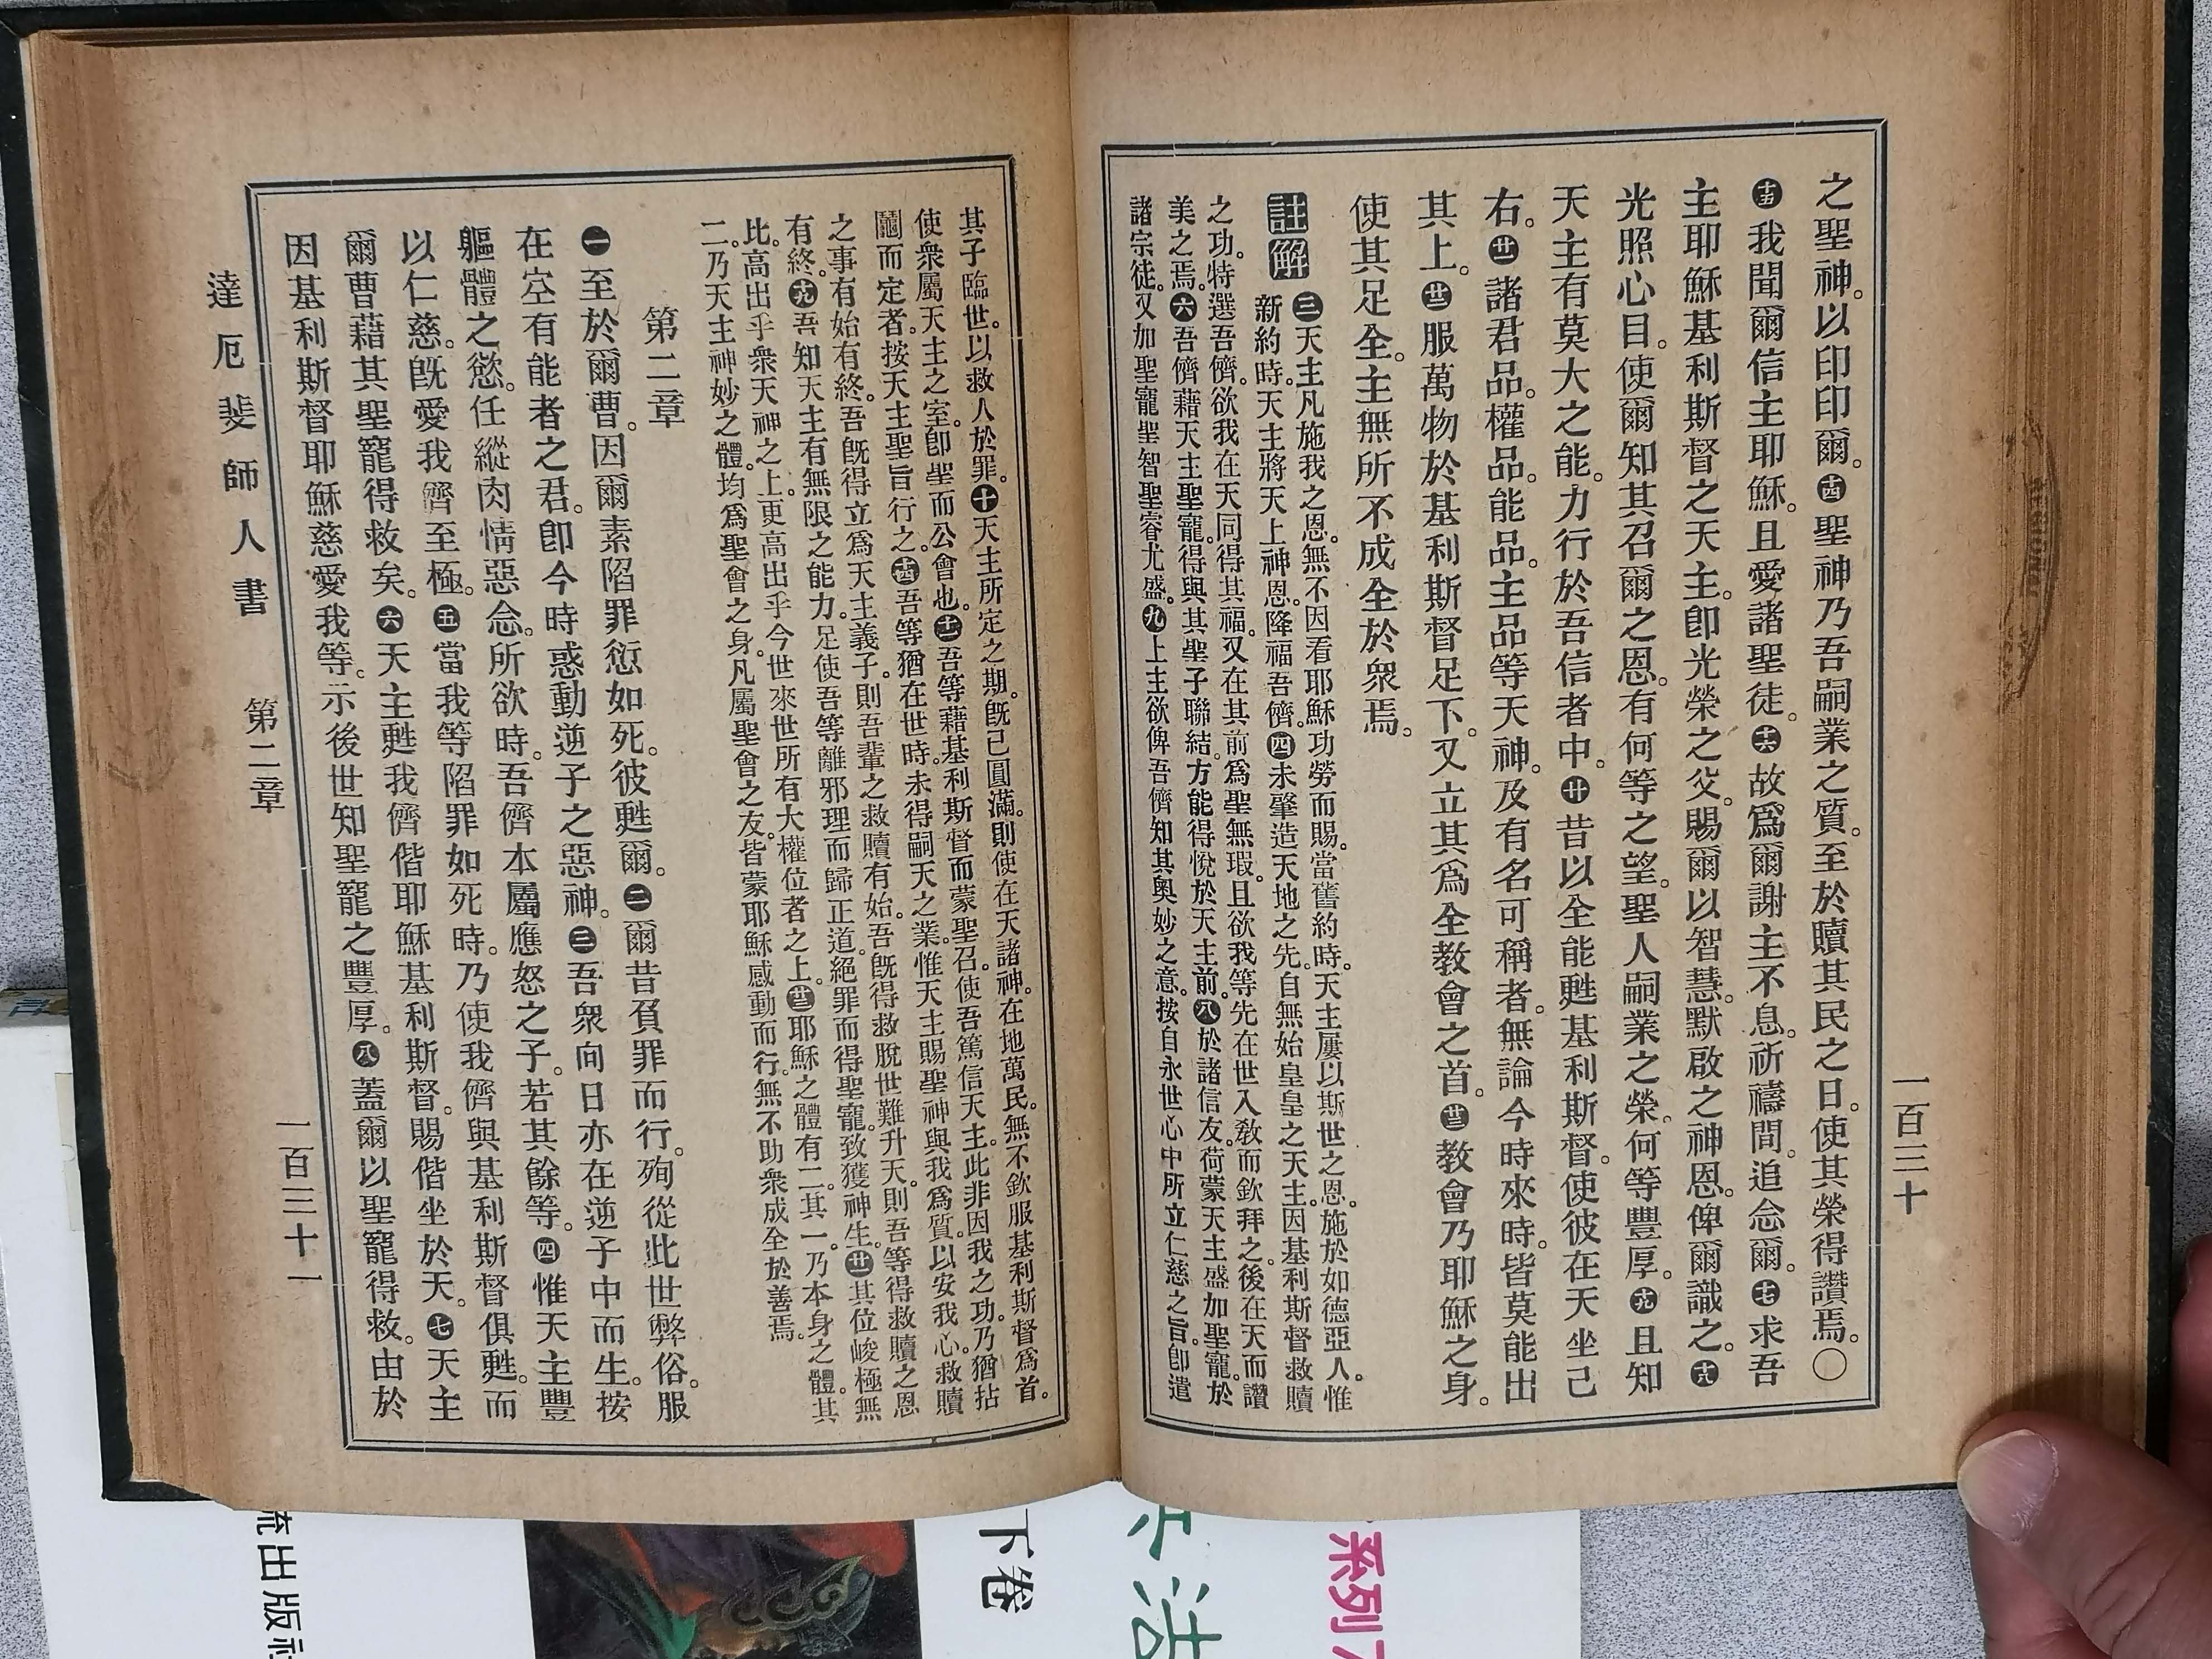 一百三十
之聖神。以印印爾。㊉四聖神乃吾嗣業之質。至於贖其民之日。使其榮得讚焉。〇
㊉五我聞爾信主耶穌。且愛諸聖徒。㊉六故爲爾謝主不息。祈禱間。追念爾。㊉七求吾
主耶穌基利斯督之天主。卽光榮之父。賜爾以智慧。默啟之神恩。俾爾識之。㊉八
光照心目。使爾知其召爾之恩。有何等之望。聖人嗣業之榮。何等豐厚。㊉九且知
天主有莫大之能。力行於吾信者中。廿昔以全能甦基利斯督。使彼在天坐己
右。廿一諸君品。權品。能品。主品等天神。及有名可稱者。無論今時來時。皆莫能出
其上。廿二服萬物於基利斯督足下。又立其爲全教會之首。廿三教會乃耶穌之身。
使其足全。主無所不成全於衆焉。
註解 ㊂天主凡施我之恩。無不因看耶穌功勞而賜。當舊約時。天主屢以斯世之恩。施於如德亞人。惟
新約時。天主將天上神恩。降福吾儕。㊃未肇造天地之先。自無始皇皇之天主。因基利斯督救贖
之功。特選吾儕。欲我在天同得其福。又在其前爲聖無瑕。且欲我等先在世入敎而欽拜之。後在天而讚
美之焉。㊅吾儕藉天主聖寵。得與其聖子聯結。方能得悅於天主前。㊇於諸信友。荷蒙天主盛加聖寵。於
諸宗徒。又加聖寵聖智聖睿尤盛。㊈上主欲俾吾儕知其奧妙之意。按自永世心中所立仁慈之旨。卽遣
其子臨世。以救人於罪。㊉天主所定之期。旣已圓滿。則使在天諸神。在地萬民。無不欽服基利斯督爲首。
使衆屬天主之室。卽聖而公會也。㊉一吾等藉基利斯督而蒙聖召。使吾篤信天主。此非因我之功。乃猶拈
鬮而定者。按天主聖旨行之。㊉四吾等猶在世時。未得嗣天之業。惟天主賜聖神與我爲質。以安我心。救贖
之事有始有終。吾旣得立爲天主義子。則吾輩之救贖有始。吾旣得救脫世難升天。則吾等得救贖之恩
有終。㊉九吾知天主有無限之能力。足使吾等離邪理而歸正道。絕罪而得聖寵。致獲神生。廿一其位峻極無
比。高出乎衆天神之上。更高出乎今世來世所有大權位者之上。廿三耶穌之體有二。其一。乃本身之體。其
二。乃天主神妙之體。均爲聖會之身。凡屬聖會之友。皆蒙耶穌感動而行。無不助衆成全於善焉。
第二章
㊀至於爾曹。因爾素陷罪愆如死。彼甦爾。㊁爾昔負罪而行。殉從此世弊俗。服
在空有能者之君。卽今時惑動逆子之惡神。㊂吾衆向日亦在逆子中而生。按
軀體之慾。任縱肉情惡念。所欲時。吾儕本屬應怒之子。若其餘等。㊃惟天主豐
以仁慈。旣愛我儕至極。㊄當我等陷罪如死時。乃使我儕與基利斯督俱甦。而
爾曹藉其聖寵得救矣。㊅天主甦我儕偕耶穌基利斯督。賜偕坐於天。㊆天主
因基利斯督耶穌慈愛我等。示後世知聖寵之豐厚。㊇蓋爾以聖寵得救。由於
達厄斐師人書 第二章 一百三十一
流出版社
下卷
系列7